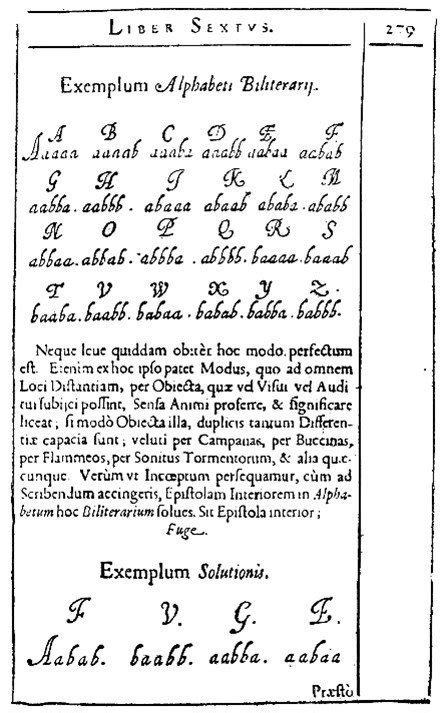 LIBER SEXTVS. 279
Exemplum Alphabeti Biliterarij.
A B C D E F
Aaaaa aaaab aaaba aaabb aabaa aabab
G H I K L M
aabba . aabbb . abaaa abaab ababa . ababb
N O P Q R S
abbaa . abbab . abbba . abbbb . baaaa . baaab
T V W X Y Z .
baaba . baabb . babaa . babab . babba . babbb.
Neque leue quiddam obitèr hoc modo perfectum
est. Etenim ex hoc ipso patet Modus, quo ad omnem
Loci Distantiam, per Obiecta, quæ vel Visui vel Audi
tui subijci possint, Sensa Animi proferre, & significare
liceat; si modò Obiecta illa, duplicis tantum Differen-
tiæ capacia sunt; veluti per Campanas, per Buccinas,
per Flammeos, per Sonitus Tormentorum, & alia quæ-
cunque. Verùm vt Incœptum persequamur, cùm ad
Scribendum accingeris, Epistolam Interiorem in Alpha-
betum hoc Biliterarium solues. Sit Epistola interior;
Fuge.
Exemplum Solutionis.
F V. G. E.
Aabab. baabb. aabba. aabaa
Præstò